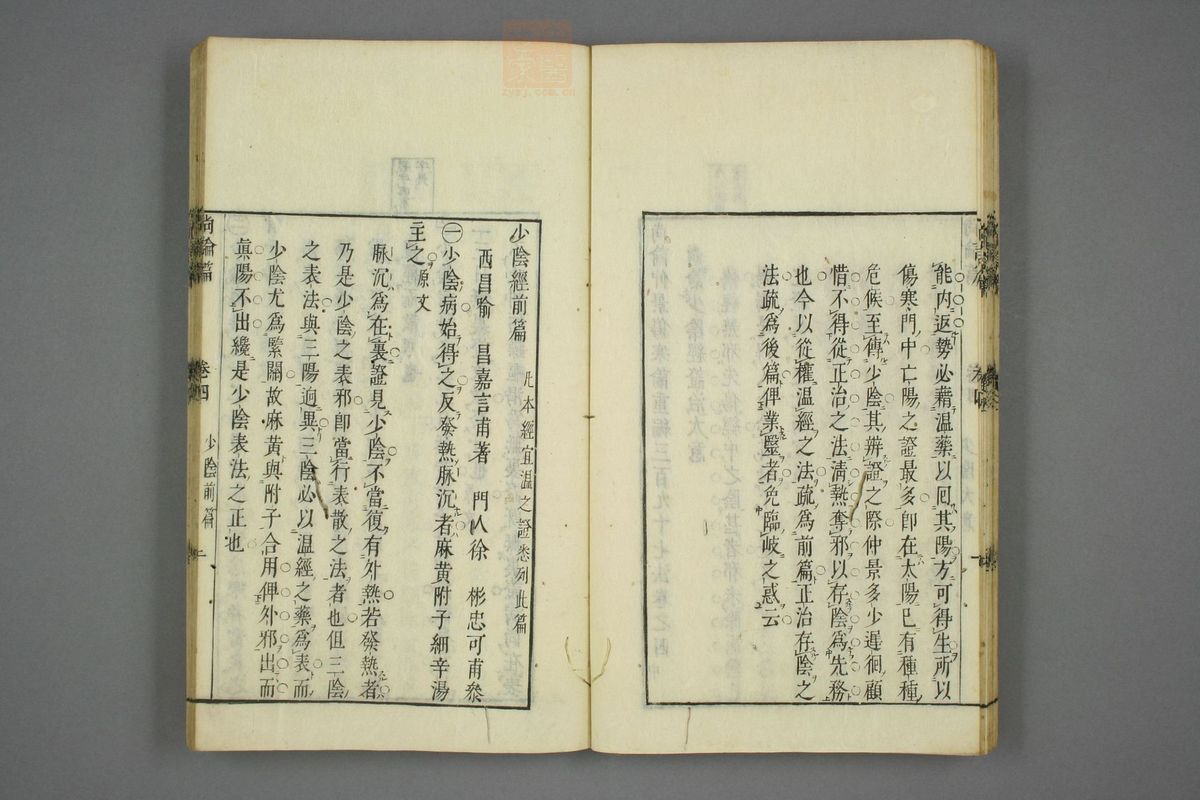 能内返勢必藉温藥以囘其陽方可得生所以
傷寒門中亡陽之證最多卽在太陽已有種種
危候至傳少陰其辨證之際仲景多少遲徊顧
惜不得從正治之法淸熱奪邪以存陰爲先務
也今以從權温經之法疏爲前篇正治存陰之
法疏爲後篇俾業醫者免臨岐之惑云
少陰經前篇 凡本經宜温之證悉列此篇
西昌喻 昌嘉言甫著 門人徐 彬忠可甫叅
㊀少陰病始得之反發熱脉沉者麻黄附子細辛湯
主之原文
脉沉爲在裏證見少陰不當復有外熱若發熱者
乃是少陰之表邪卽當行表散之法者也但三陰
之表法與三陽逈異三陰必以温經之藥爲表而
少陰尤爲緊關故麻黄與附子合用俾外邪出而
眞陽不出纔是少陰表法之正也
尚論篇 卷四 少陰前篇 一
zysj.com.cn